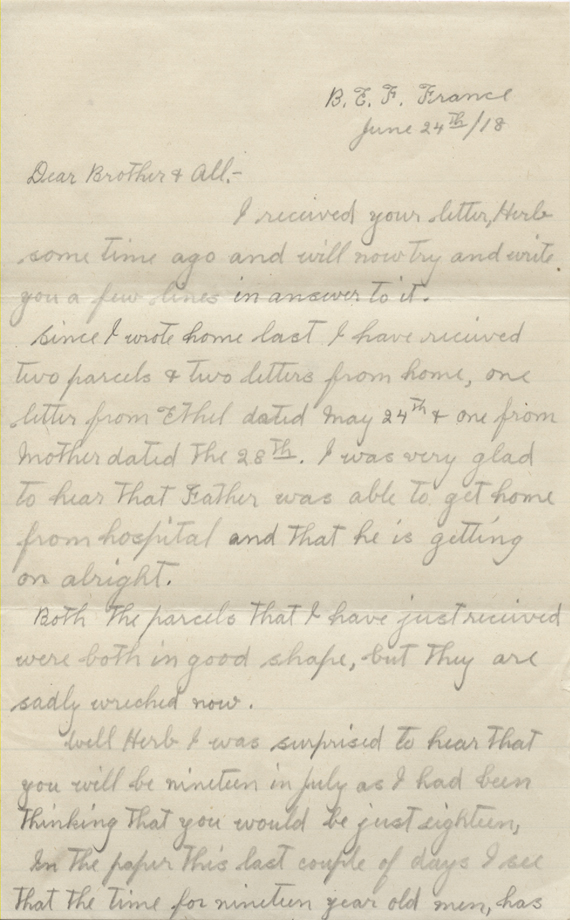 B. E. F. France
June 24th/18
Dear Brother & All.-
I received your letter, Herb
some time ago and will now try and write
you a few lines in answer to it.
Since I wrote home last I have received
two parcels & two letters from home, one
letter from Ethel dated May 24th & one from
Mother dated the 28th. I was very glad
to hear that Father was able to get home
from hospital and that he is getting
on alright.
Both the parcels that I have just received
were both in good shape, but they are
sadly wrecked now.
Well Herb I was surprised to hear that
you will be nineteen in July as I had been
thinking that you would be just eighteen,
In the paper this last couple of days I see
that the time for nineteen year old men, has